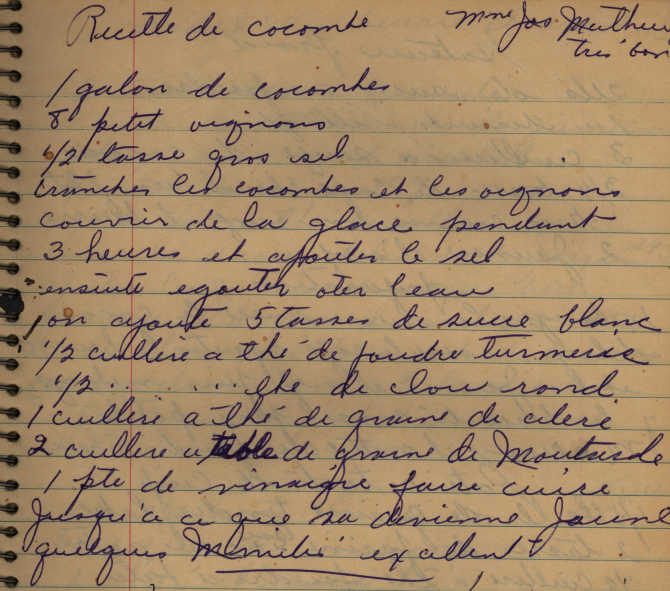 Recette de cocombe Mme Jos. Mathieu
très bon
1 galon de cocombes
8 petit oignons
1/2 tasse gros sel
trancher les cocombes et les oignons
couvrir de la glace pendant
3 heures et ajouter le sel
ensuite egouter oter l'eau
on ajoute 5 tasses de sucre blanc
1/2 cuillere a thé de poudre turmeric
1/2 .. ... the de clou rond
1 cuillere a thé de graine de celeri
2 cuillere a table de graine de Moutarde
1 pte de vinaigre faire cuire
Jusqu'a ce que sa devienne Jaune
quelques excellent